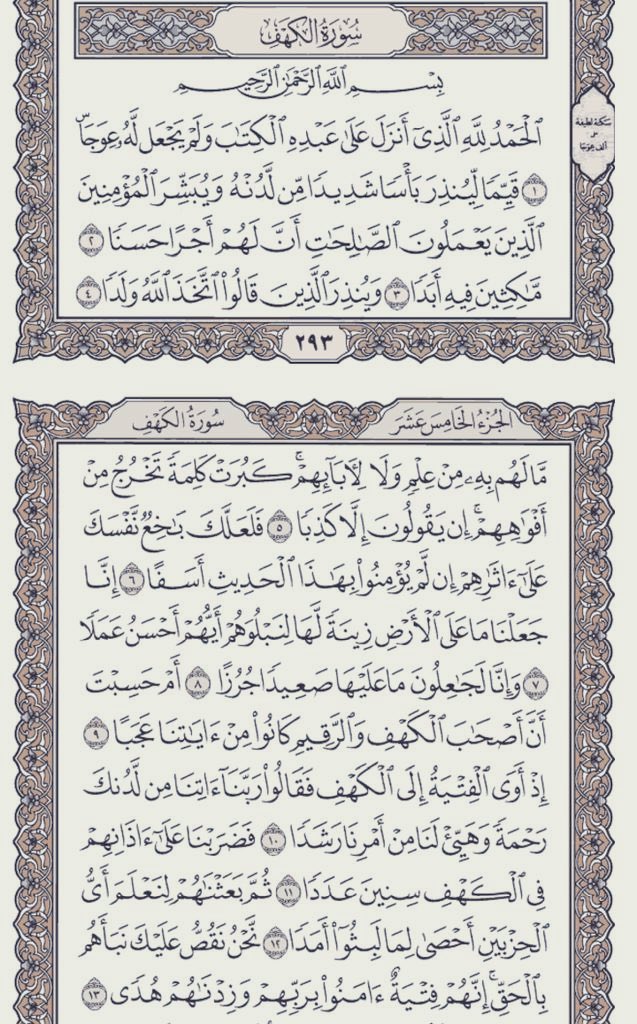 سُورَةُ الكَهْفِ
بِسْمِ اللَّهِ الرَّحْمَٰنِ الرَّحِيمِ
ٱلْحَمْدُ لِلَّهِ ٱلَّذِىٓ أَنزَلَ عَلَىٰ عَبْدِهِ ٱلْكِتَٰبَ وَلَمْ يَجْعَل لَّهُۥ عِوَجَاۜ
١ قَيِّمًا لِّيُنذِرَ بَأْسًا شَدِيدًا مِّن لَّدُنْهُ وَيُبَشِّرَ ٱلْمُؤْمِنِينَ
ٱلَّذِينَ يَعْمَلُونَ ٱلصَّٰلِحَٰتِ أَنَّ لَهُمْ أَجْرًا حَسَنًا ٢
مَّٰكِثِينَ فِيهِ أَبَدًا ٣ وَيُنذِرَ ٱلَّذِينَ قَالُوا۟ ٱتَّخَذَ ٱللَّهُ وَلَدًا ٤
سكتة لطيفة
على
ألف عوجا
٢٩٣
الجُزْءُ الخَامِسَ عَشَرَ
سُورَةُ الكَهْفِ
مَّا لَهُم بِهِۦ مِنْ عِلْمٍ وَلَا لِءَابَآئِهِمْ ۚ كَبُرَتْ كَلِمَةً تَخْرُجُ مِنْ
أَفْوَٰهِهِمْ ۚ إِن يَقُولُونَ إِلَّا كَذِبًا ٥ فَلَعَلَّكَ بَٰخِعٌ نَّفْسَكَ
عَلَىٰٓ ءَاثَٰرِهِمْ إِن لَّمْ يُؤْمِنُوا۟ بِهَٰذَا ٱلْحَدِيثِ أَسَفًا ٦ إِنَّا
جَعَلْنَا مَا عَلَى ٱلْأَرْضِ زِينَةً لَّهَا لِنَبْلُوَهُمْ أَيُّهُمْ أَحْسَنُ عَمَلًا
٧ وَإِنَّا لَجَٰعِلُونَ مَا عَلَيْهَا صَعِيدًا جُرُزًا ٨ أَمْ حَسِبْتَ
أَنَّ أَصْحَٰبَ ٱلْكَهْفِ وَٱلرَّقِيمِ كَانُوا۟ مِنْ ءَايَٰتِنَا عَجَبًا ٩
إِذْ أَوَى ٱلْفِتْيَةُ إِلَى ٱلْكَهْفِ فَقَالُوا۟ رَبَّنَآ ءَاتِنَا مِن لَّدُنكَ
رَحْمَةً وَهَيِّئْ لَنَا مِنْ أَمْرِنَا رَشَدًا ١٠ فَضَرَبْنَا عَلَىٰٓ ءَاذَانِهِمْ
فِى ٱلْكَهْفِ سِنِينَ عَدَدًا ١١ ثُمَّ بَعَثْنَٰهُمْ لِنَعْلَمَ أَىُّ
ٱلْحِزْبَيْنِ أَحْصَىٰ لِمَا لَبِثُوٓا۟ أَمَدًا ١٢ نَّحْنُ نَقُصُّ عَلَيْكَ نَبَأَهُم
بِٱلْحَقِّ ۚ إِنَّهُمْ فِتْيَةٌ ءَامَنُوا۟ بِرَبِّهِمْ وَزِدْنَٰهُمْ هُدًى ١٣